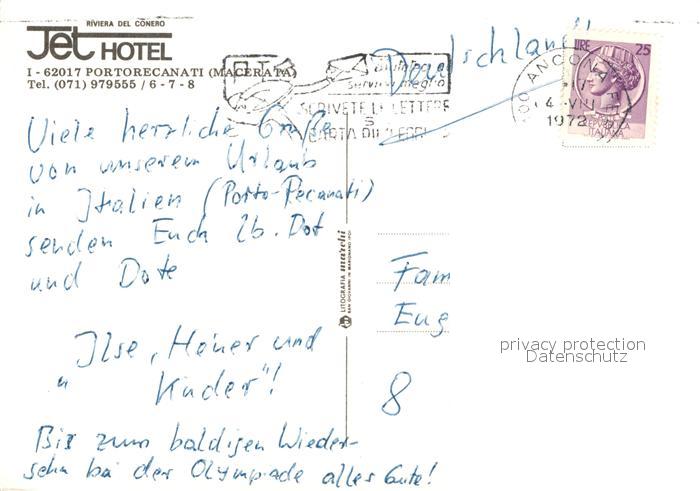 RIVIERA DEL CONERO
Jet HOTEL
I - 62017 PORTORECANATI (MACERATA)
Tel. (071) 979555 / 6 - 7 - 8
Deutschland
LIRE 25
ANCONA
4 - VIII
1972
REPVBBLICA
ITALIANA
P.T.
aiutateci a
servirvi meglio
SCRIVETE LE LETTERE
S
CARTA DI
Viele herzliche Grüße
von unserem Urlaub
in Italien (Porto-Recanati)
senden Euch lb. Dot
und Dote
Ilse, Heiner und
" Kinder"!
Bis zum baldigen Wieder-
sehn bei der Olympiade alles Gute!
LITOGRAFIA marchi
Fam
Eug
8
privacy protection
Datenschutz